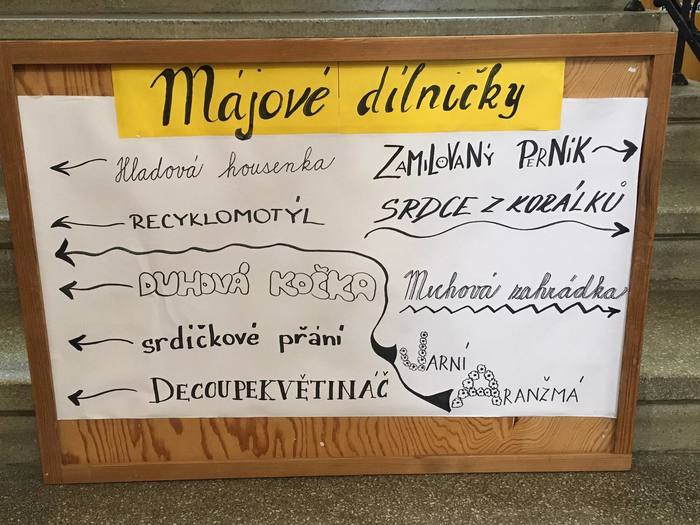 Májové dílničky
Hladová housenka
RECYKLOMOTÝL
DUHOVÁ KOČKA
srdíčkové přání
DECOUPEKVĚTINÁČ
ZAMILOVANÝ PERNÍK
SRDCE Z KORÁLKŮ
Mechová zahrádka
JARNÍ
ARANŽMÁ